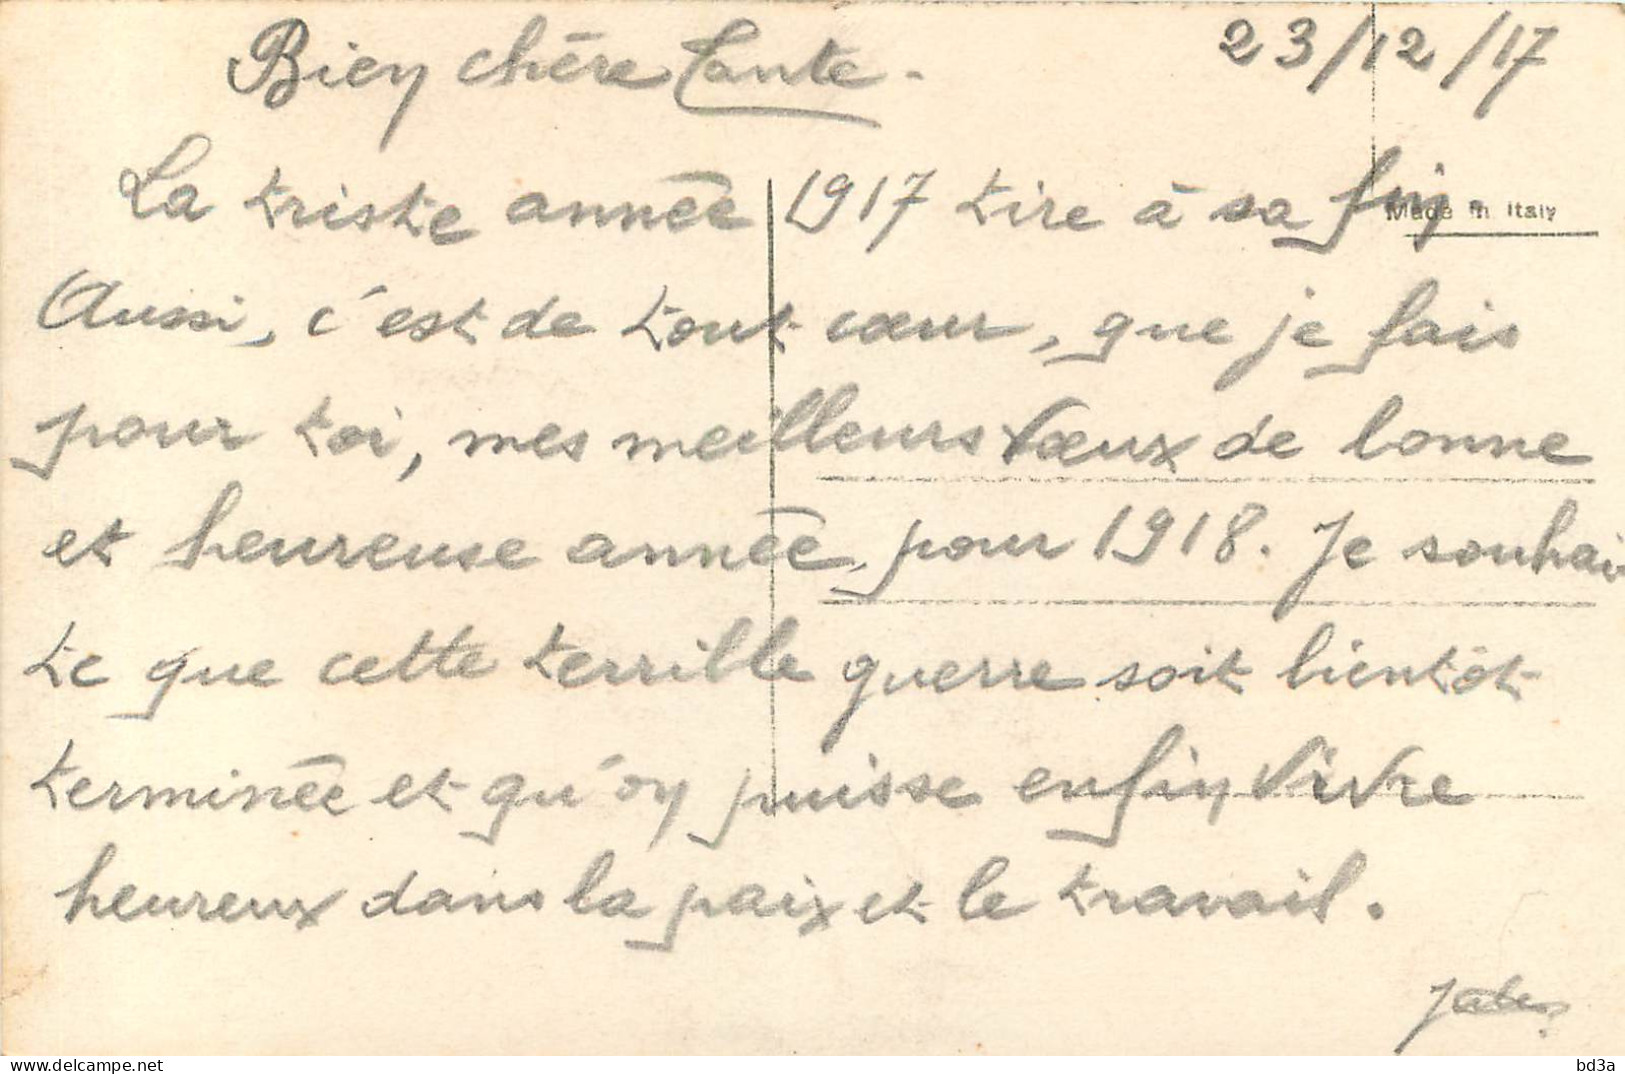 23/12/17
Bien chère Tante.
La triste année 1917 tire à sa fin.
Made in Italy
Aussi, c'est de tout cœur, que je fais
pour toi, mes meilleurs vœux de bonne
et heureuse année, pour 1918. Je souhai
te que cette terrible guerre soit bientôt
terminée et qu'on puisse enfin vivre
heureux dans la paix et le travail.
delcampe.net
bd3a